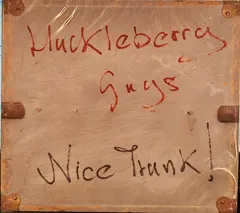 Huckleberry
Guys
Nice Trunk!